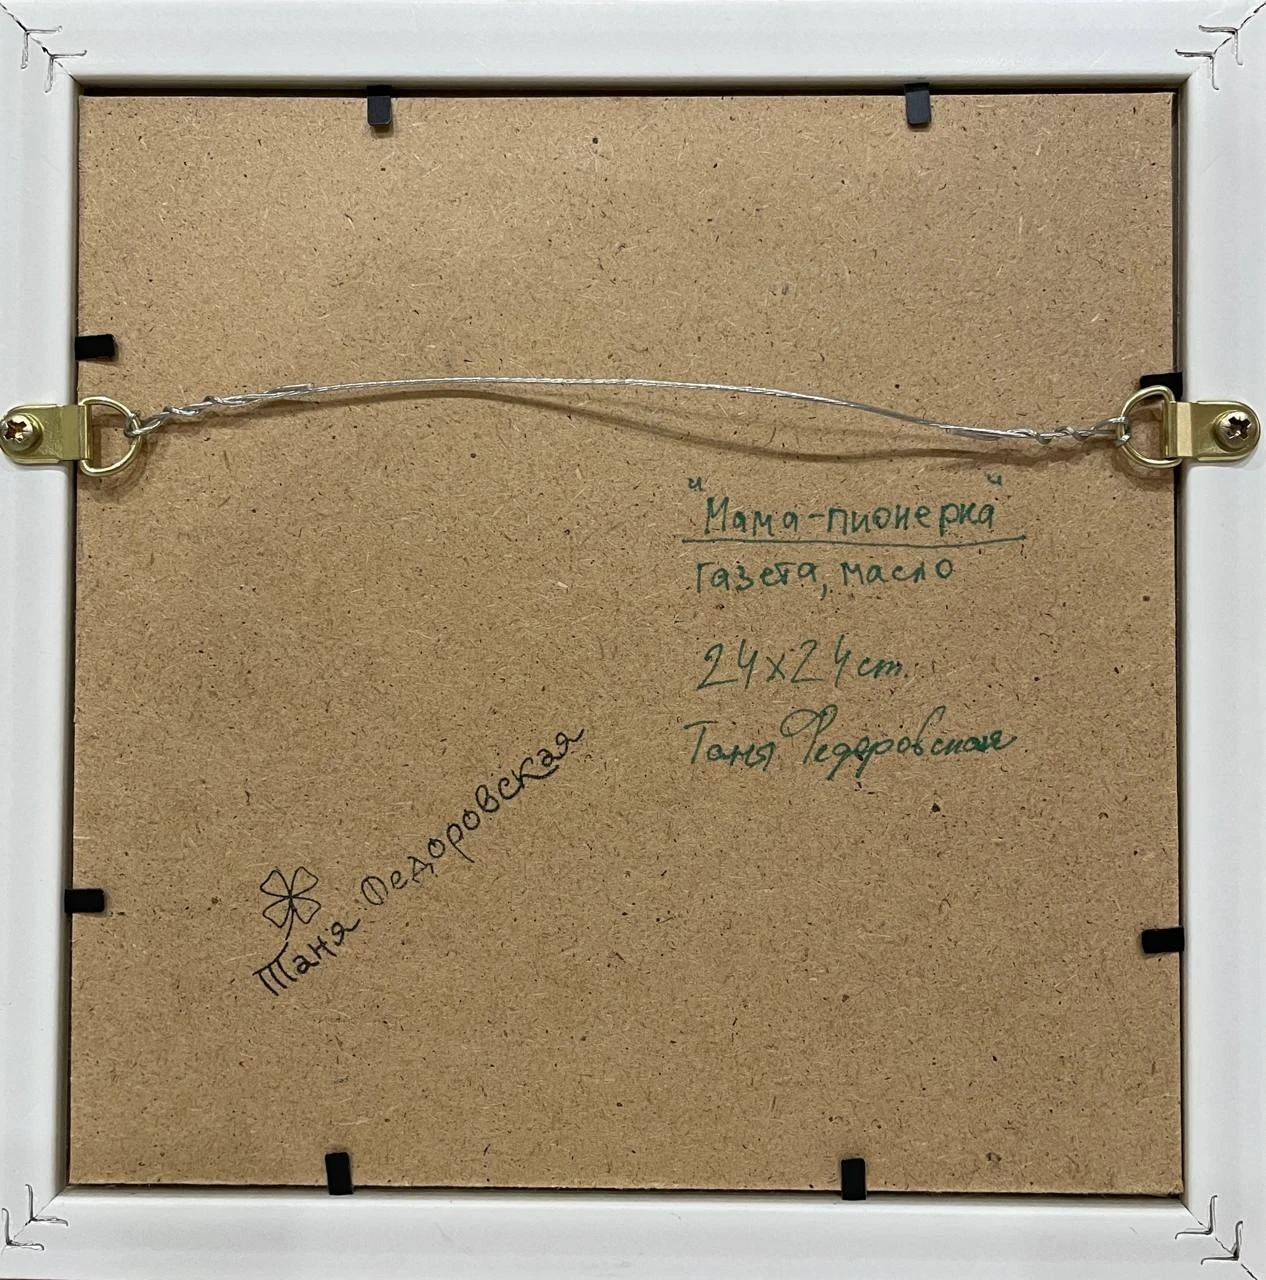 "Мама-пионерка"
газета, масло
24x24 cm.
Таня Федоровская
Таня Федоровская